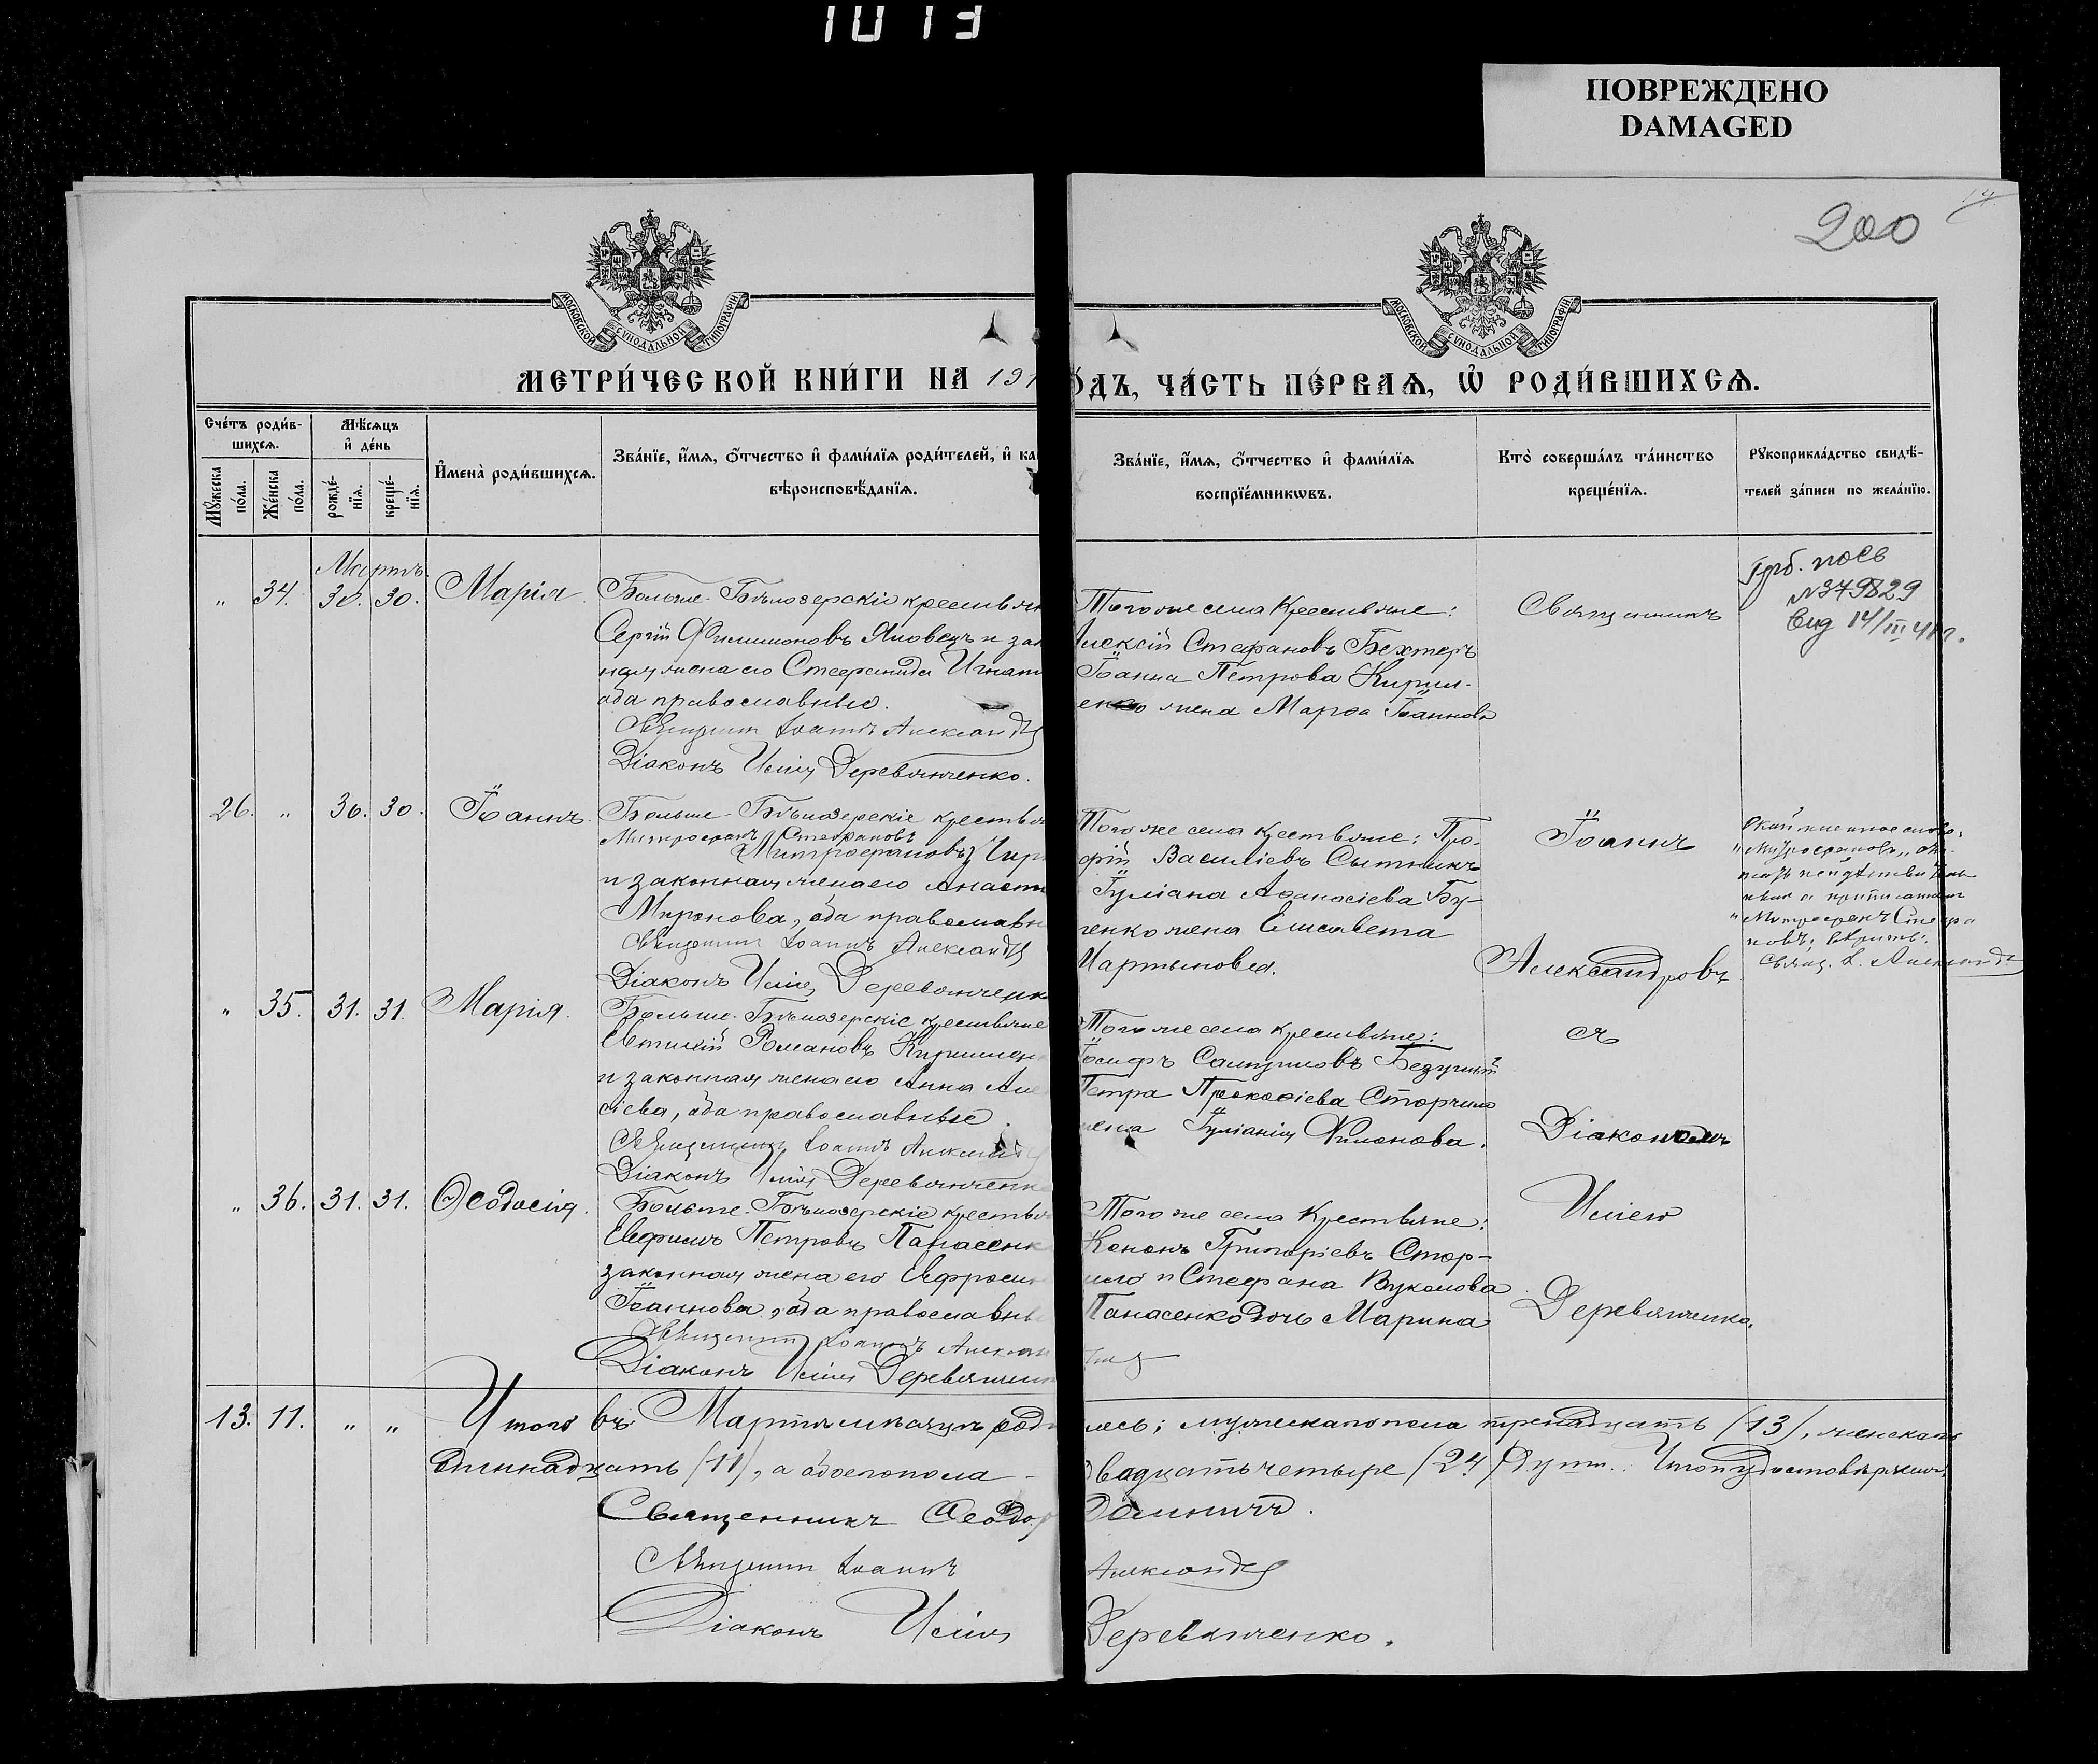 1013
ПОВРЕЖДЕНО
DAMAGED
200
МОСКОВСКОЙ СѴНОДАЛЬНОЙ ТИПОГРАФІИ
МОСКОВСКОЙ СѴНОДАЛЬНОЙ ТИПОГРАФІИ
МЕТРИ́ЧЕСКОЙ КНИ́ГИ НА 191
О́ДЪ, ЧА́СТЬ ПЕ́РВАѦ, Ѡ҆ РОДИ́ВШИХСѦ.
Сче́тъ роди́в-
шихсѧ.
Мѣ́сѧцъ
и҆ де́нь
Мꙋ́жеска
по́ла.
Же́нска
по́ла.
рожде́-
нїѧ.
креще́-
нїѧ.
И҆мена̀ роди́вшихсѧ.
Зва́нїе, и҆́мѧ, ѻ҆́тчество и҆ фами́лїѧ роди́телей, и҆ ка
вѣроисповѣ́данїѧ.
Зва́нїе, и҆́мѧ, ѻ҆́тчество и҆ фами́лїѧ
воспрїе́мникѡвъ.
Кто̀ соверша́лъ та́инство
креще́нїѧ.
Рꙋкоприкла́дство свидѣ́-
телей за́писи по жела́нїю.
Мартъ
„ 34. 30. 30. Марія
Больше-Бѣлозерскіе крестьян
Сергій Филимоновъ Яловецъ и зак
ная жена его Стефанида Игнат
оба православные.
Священникъ Іоаннъ Александр
Діаконъ Исаія Деревянченко.
Того же села крестьяне:
Алексій Стефановъ Бехтеръ
Іоанна Петрова Кирил-
енко жена Марѳа Іоаннова
Священникъ
№379829
14/III 41г.
26. „ 30. 30. Іоаннъ.
Больше-Бѣлозерскіе крестья
Митрофанъ Стефановъ
Митрофановъ Чир
и законная жена его Анаст
Миронова, оба православн
Священникъ Іоаннъ Александр
Діаконъ Исаія Деревянченк
Того же села крестьяне: Про-
фій Василіевъ Сытникъ
Іуліана Аѳанасіева Бу-
ченко жена Елисавета
Мартынова.
Іоаннъ
Александровъ
„Митрофановъ„
„Митрофанъ Стефа
новъ„ вѣрить.
Свящ. І. Александр
„ 35. 31. 31. Марія.
Больше-Бѣлозерскіе крестьяне
Евтихій Романовъ Кириллен
и законная жена его Анна Але
сіева, оба православные.
Священникъ Іоаннъ Александ
Діаконъ Исаія Деревянченк
Того же села крестьяне:
Іосифъ Самуиловъ Безуглый
Петра Прокофіева Сторчило
жена Іуліанія Филонова.
съ
Діакономъ
„ 36. 31. 31. Ѳеодосія.
Больше-Бѣлозерскіе крестья
Евфимъ Петровъ Панасенк
законная жена его Евфросин
Іоаннова, оба православны
Священникъ Іоаннъ Александ
Діаконъ Исаія Деревянченк
Того же села крестьяне:
Кононъ Григоріевъ Стор-
чило и Стефана Вуколова
Панасенко дочь Марина
Исаіею
Деревянченко.
13. 11. „ „ Итого въ Мартѣ мѣсяцѣ роди
лось: мужеска пола тринадцать (13), женскаго
одиннадцать (11), а обоего пола -
двадцать четыре (24) душ. Что и удостовѣряемъ
Священникъ Ѳеодор
Священникъ Іоаннъ
Александр
Діаконъ Исаія
Деревянченко.